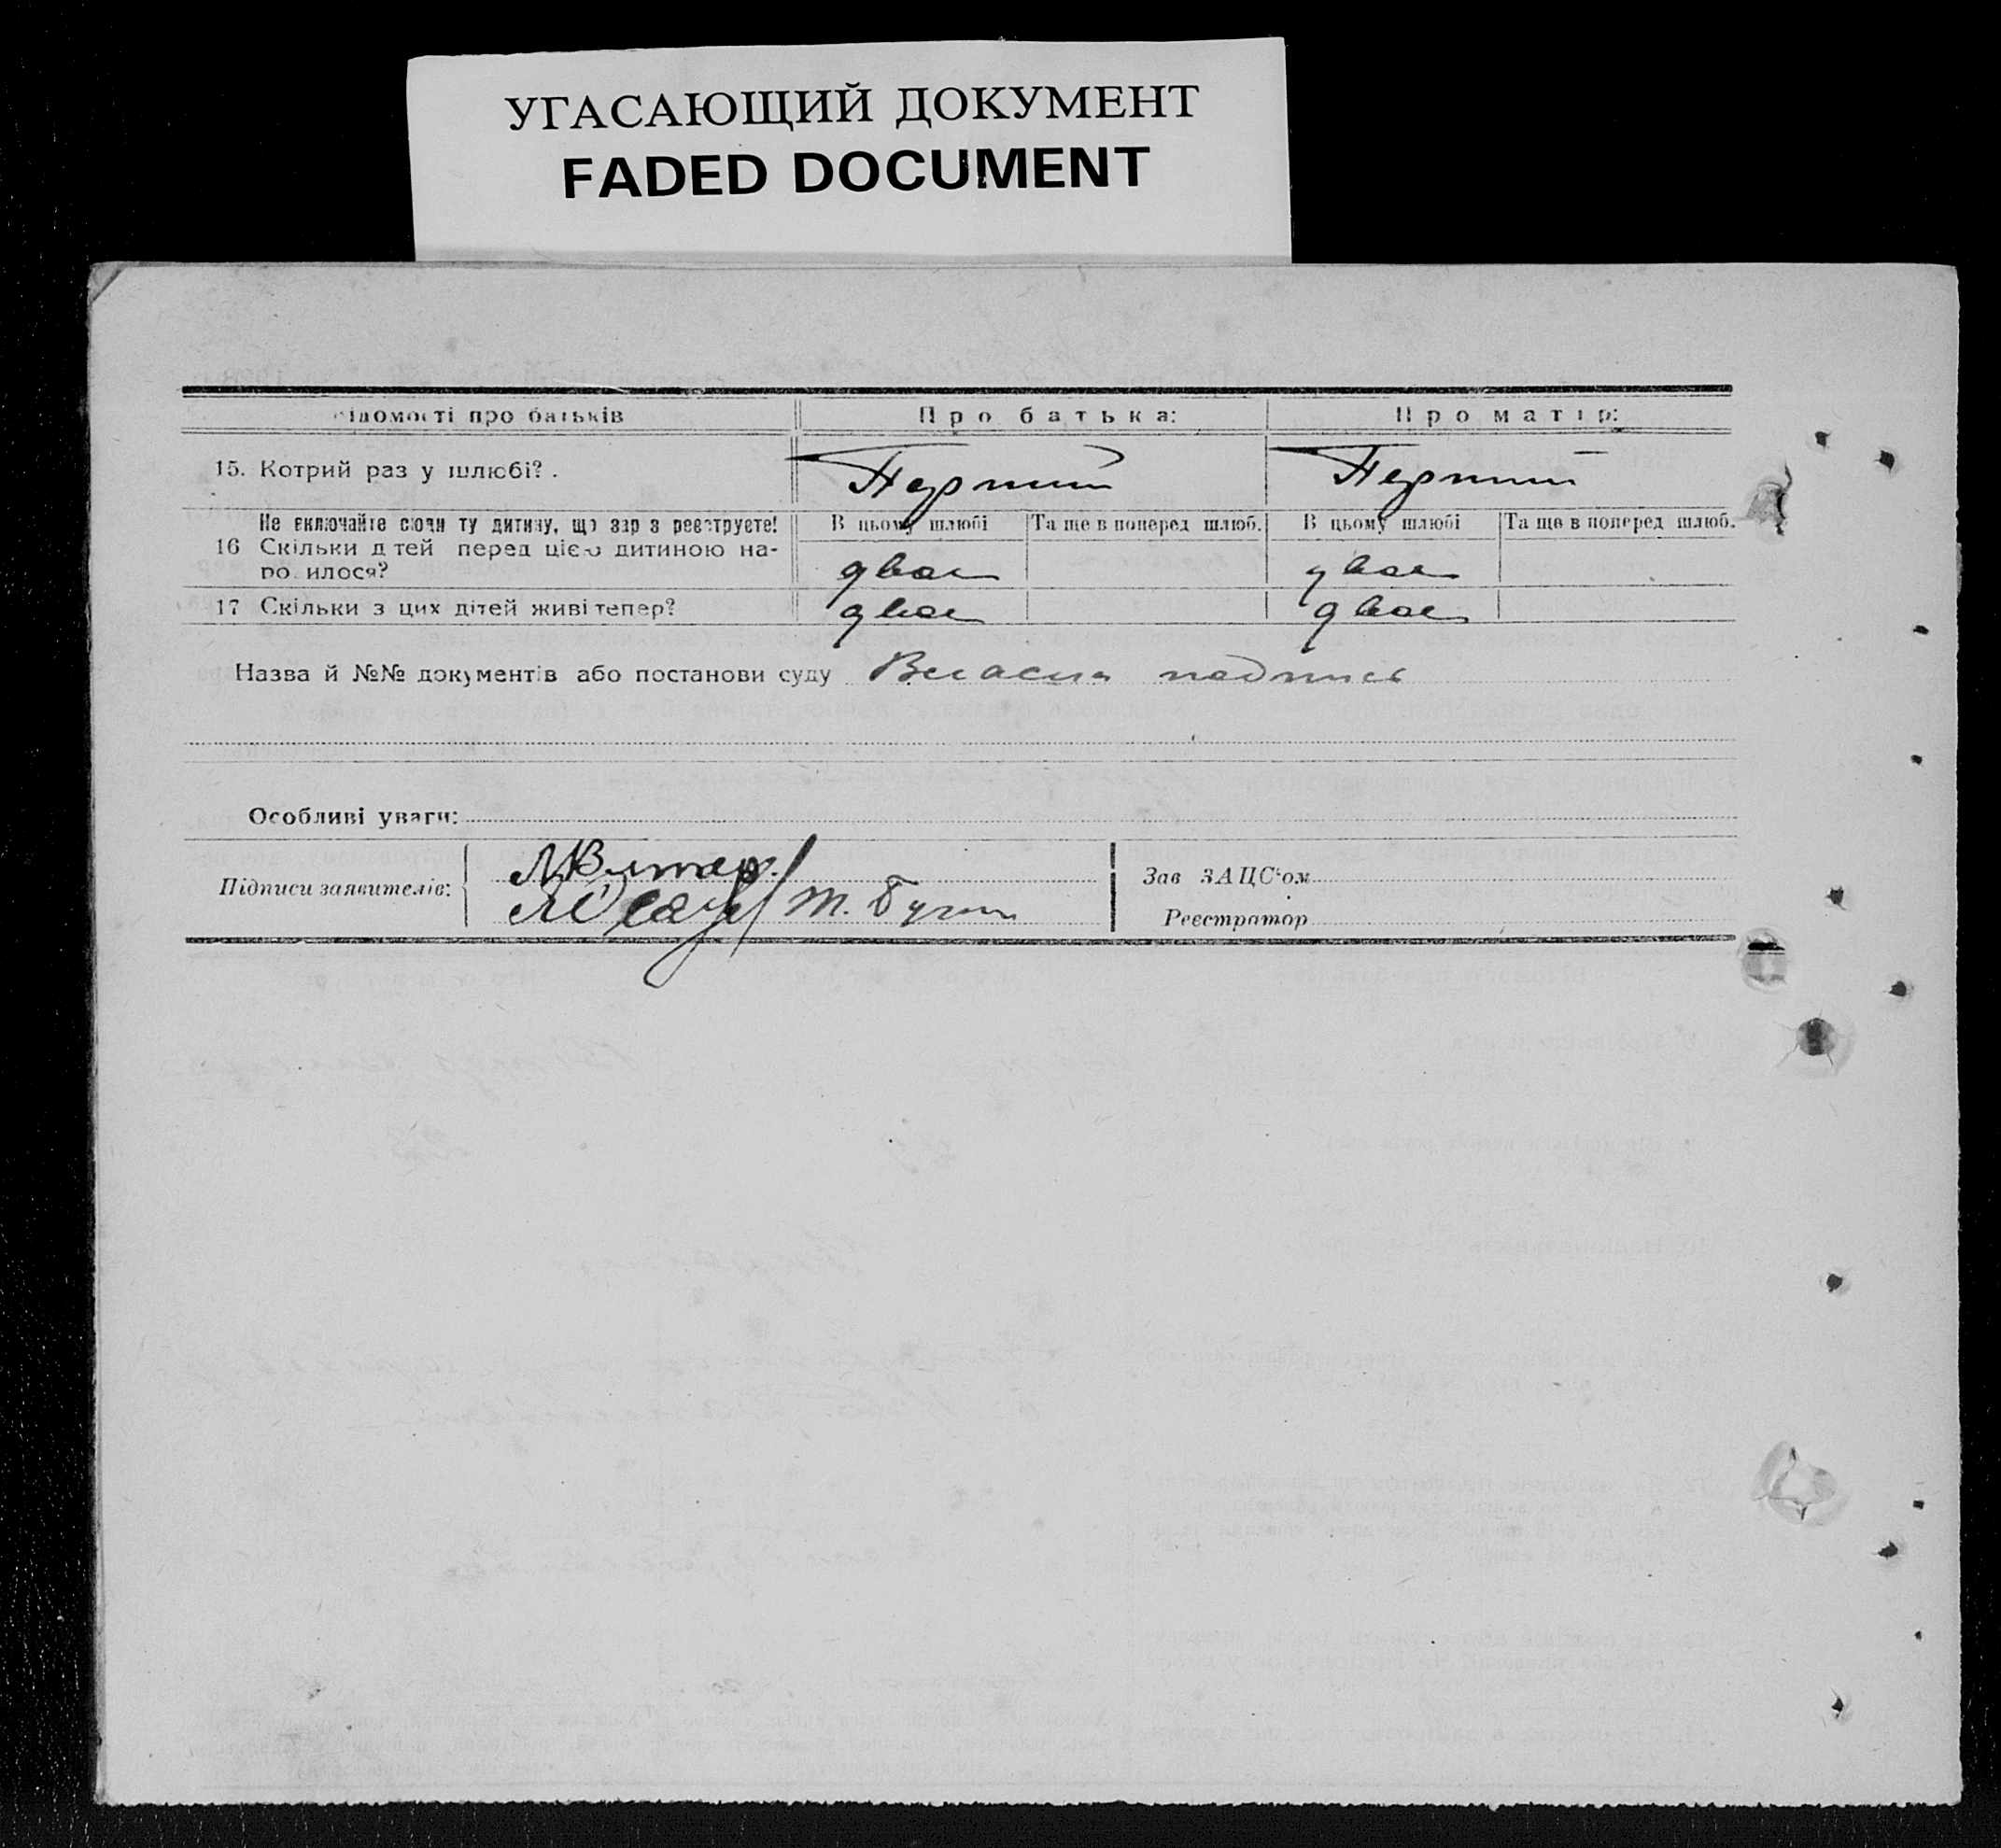 УГАСАЮЩИЙ ДОКУМЕНТ
FADED DOCUMENT
ідомості про батьків Про батька: Про матір:
15. Котрий раз у шлюбі? . Перший Перший
Не включайте сюди ту дитину, що зар з реєструєте! В цьому шлюбі Та ще в поперед шлюб. В цьому шлюбі Та ще в поперед шлюб.
16 Скільки д тей перед цією дитиною на-
ро илося? двоє двоє
17 Скільки з цих дітей живі тепер? двоє двоє
Назва й №№ документів або постанови суду Власна подпись
Особливі уваги:
Підписи заявителів: Зав ЗАЦС'ом
Реєстратор